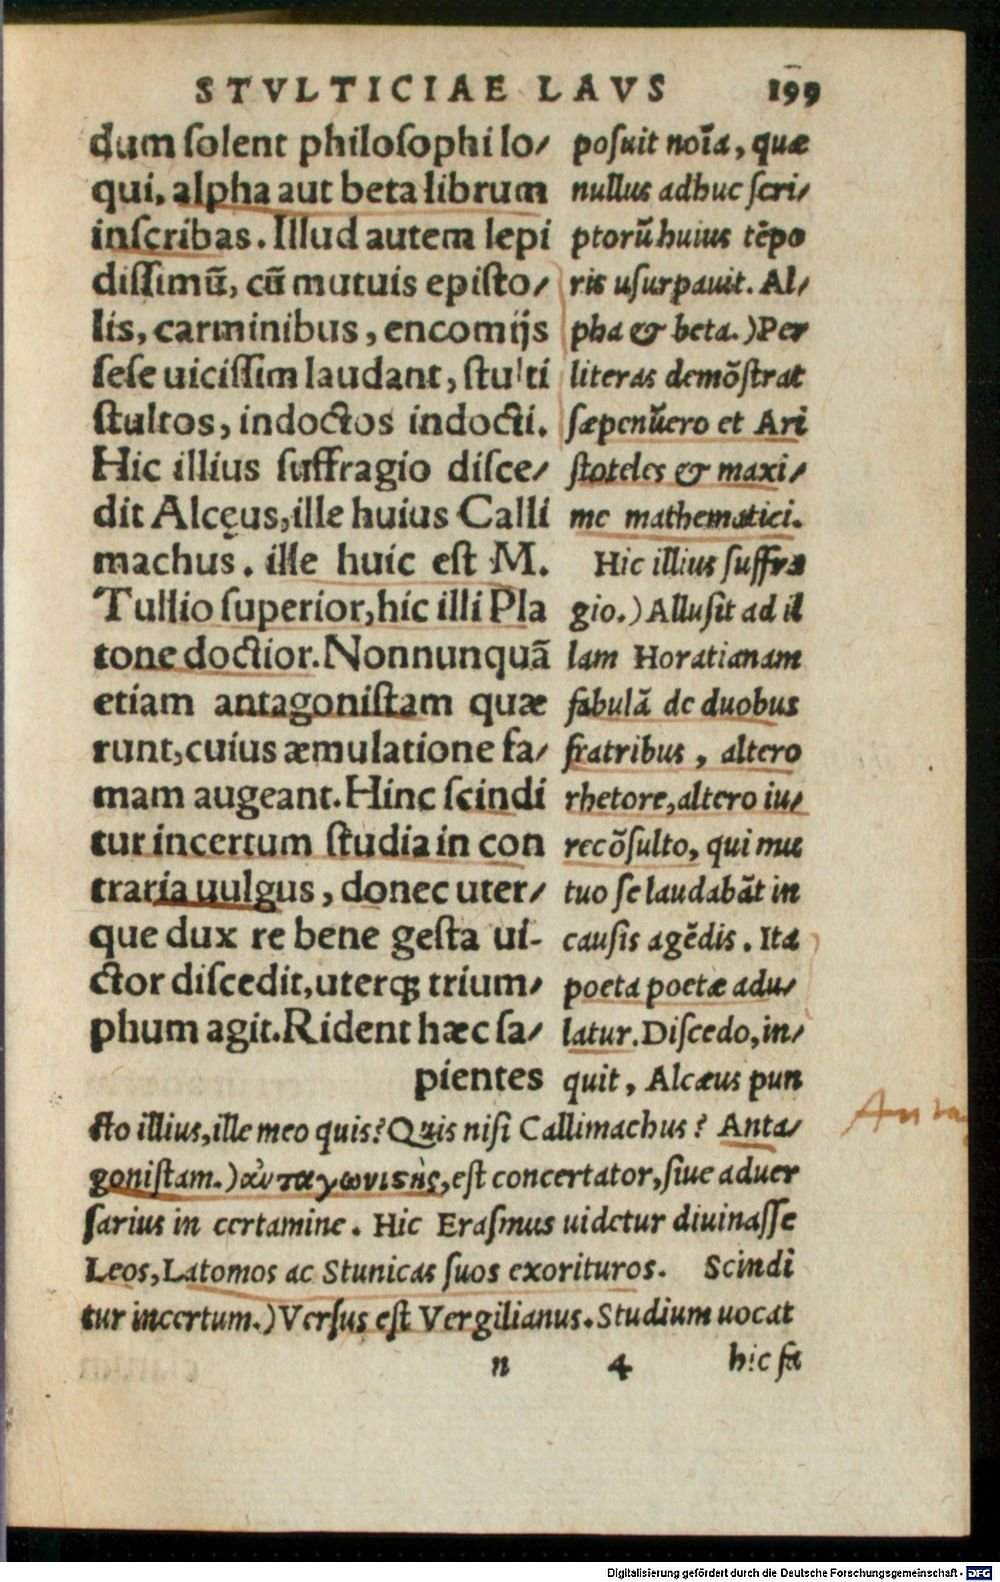 STVLTICIAE LAVS 199
dum solent philosophi lo/
qui, alpha aut beta librum
inscribas. Illud autem lepi
dissimū, cū mutuis episto/
lis, carminibus, encomijs
sese uicissim laudant, stulti
stultos, indoctos indocti.
Hic illius suffragio disce/
dit Alcęus, ille huius Calli
machus. ille huic est M.
Tullio superior, hic illi Pla
tone doctior. Nonnunquā
etiam antagonistam quæ
runt, cuius æmulatione fa/
mam augeant. Hinc scindi
tur incertum studia in con
traria uulgus, donec uter/
que dux re bene gesta ui-
ctor discedit, uterq; trium/
phum agit. Rident hæc sa/
pientes
posuit noīa, quæ
nullus adhuc scri/
ptorū huius tēpo
ris usurpauit. Al/
pha & beta.) Per
literas demōstrat
sæpenūero et Ari
stoteles & maxi/
me mathematici.
Hic illius suffra
gio.) Allusit ad il
lam Horatianam
fabulā de duobus
fratribus, altero
rhetore, altero iu/
recōsulto, qui mu
tuo se laudabāt in
causis agēdis. Ita
poeta poetæ adu/
latur. Discedo, in/
quit, Alcæus pun
cto illius, ille meo quis? Quis nisi Callimachus? Anta/
gonistam.) ἀνταγωνιστὴς, est concertator, siue aduer
sarius in certamine. Hic Erasmus uidetur diuinasse
Leos, Latomos ac Stunicas suos exorituros. Scindi
tur incertum.) Versus est Vergilianus. Studium uocat
n 4 hic fa
Digitalisierung gefördert durch die Deutsche Forschungsgemeinschaft - DFG